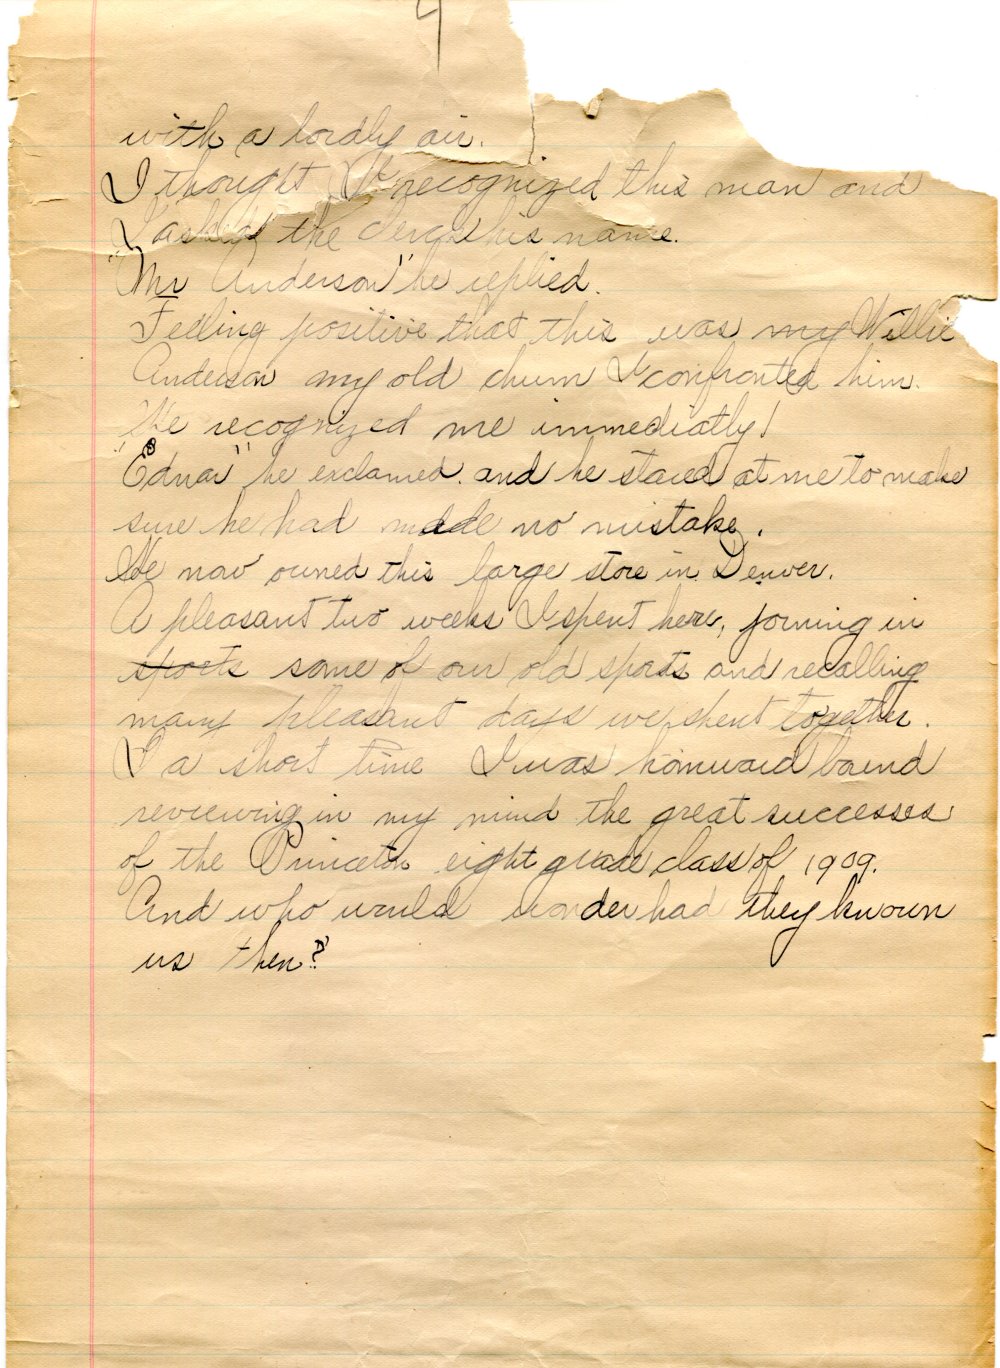 4
with a lordly air.
I thought I recognized this man and
I asked the clerk his name.
"Mr Anderson" he replied.
Feeling positive that this was my Willie
Anderson my old chum I confronted him.
He recognized me immediatly!
"Edna" he exclamed. and he stared at me to make
sure he had made no mistake.
He now owned this large store in Denver.
A pleasant two weeks I spent here, joining in
sports some of our old sports and recalling
many pleasant days we spent together.
I a short time I was homward bound
reviewing in my mind the great successes
of the Princeton eight grade class of 1909.
And who would wonder had they known
us then?